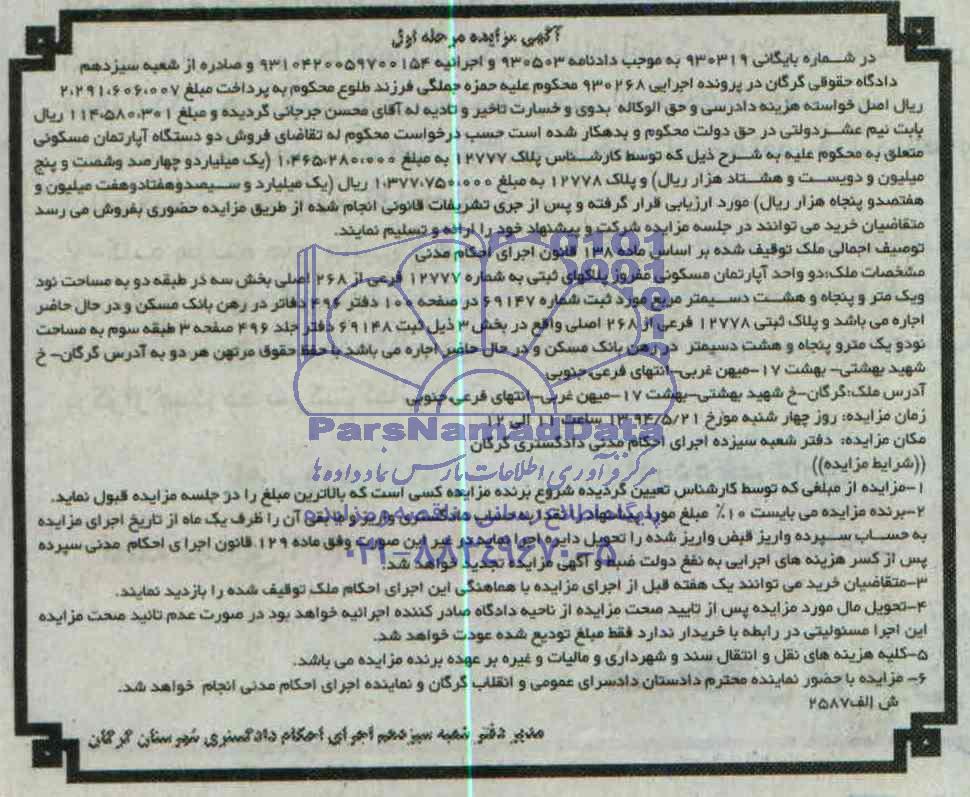 آگهی مزایده مرحله اول
در شماره بایگانی ۹۳۰۳۱۹ به موجب دادنامه ۹۳۰۵۰۳ و اجرائیه ۹۳۱۰۴۲۰۰۵۹۷۰۰۱۵۴ و صادره از شعبه سیزدهم
دادگاه حقوقی گرگان در پرونده اجرایی ۹۳۰۲۶۸ محکوم علیه حمزه جملگی فرزند طلوع محکوم به پرداخت مبلغ ۲،۲۹۱،۶۰۶،۰۰۷
ریال اصل خواسته هزینه دادرسی و حق الوکاله بدوی و خسارت تاخیر و تادیه له آقای محسن جرجانی گردیده و مبلغ ۱۱۴،۵۸۰،۳۰۱ ریال
بابت نیم عشردولتی در حق دولت محکوم و بدهکار شده است حسب درخواست محکوم له تقاضای فروش دو دستگاه آپارتمان مسکونی
متعلق به محکوم علیه به شرح ذیل که توسط کارشناس پلاک ۱۲۷۷۷ به مبلغ ۱،۴۶۵،۲۸۰،۰۰۰ (یک میلیاردو چهارصد وشصت و پنج
میلیون و دویست و هشتاد هزار ریال) و پلاک ۱۲۷۷۸ به مبلغ ۱،۳۷۷،۷۵۰،۰۰۰ ریال (یک میلیارد و سیصدوهفتادوهفت میلیون و
هفتصدو پنجاه هزار ریال) مورد ارزیابی قرار گرفته و پس از جری تشریفات قانونی انجام شده از طریق مزایده حضوری بفروش می رسد
متقاضیان خرید می توانند در جلسه مزایده شرکت و پیشنهاد خود را ارائه و تسلیم نمایند.
توصیف اجمالی ملک توقیف شده بر اساس ماده ۱۳۸ قانون اجرای احکام مدنی
مشخصات ملک:دو واحد آپارتمان مسکونی مفروز پلاکهای ثبتی به شماره ۱۲۷۷۷ فرعی از ۲۶۸ اصلی بخش سه در طبقه دو به مساحت نود
ویک متر و پنجاه و هشت دسیمتر مربع مورد ثبت شماره ۶۹۱۴۷ در صفحه ۱۰۰ دفتر ۴۹۶ دفاتر در رهن بانک مسکن و در حال حاضر
اجاره می باشد و پلاک ثبتی ۱۲۷۷۸ فرعی از ۲۶۸ اصلی واقع در بخش ۳ ذیل ثبت ۶۹۱۴۸ دفتر جلد ۴۹۶ صفحه ۳ طبقه سوم به مساحت
نودو یک مترو پنجاه و هشت دسیمتر در رهن بانک مسکن و در حال حاضر اجاره می باشد با حفظ حقوق مرتهن هر دو به آدرس گرگان- خ
شهید بهشتی- بهشت ۱۷-میهن غربی-انتهای فرعی جنوبی
آدرس ملک:گرگان-خ شهید بهشتی-بهشت ۱۷-میهن غربی-انتهای فرعی جنوبی
زمان مزایده: روز چهار شنبه مورخ ۱۳۹۴/۵/۲۱ ساعت ۱۱ الی ۱۲
ParsNamadData
مکان مزایده: دفتر شعبه سیزده اجرای احکام مدنی دادگستری گرگان
مرکز فرآوری اطلاعات پارس نماد داده ها
((شرایط مزایده))
۱-مزایده از مبلغی که توسط کارشناس تعیین گردیده شروع برنده مزایده کسی است که بالاترین مبلغ را در جلسه مزایده قبول نماید.
۲-برنده مزایده می بایست ۱۰٪ مبلغ مورد پیشنهاد را نقدا به حساب دادگستری واریز و مابقی آن را ظرف یک ماه از تاریخ اجرای مزایده
به حساب سپرده واریز قبض واریز شده را تحویل دایره اجرا نماید در غیر این صورت وفق ماده ۱۲۹ قانون اجرای احکام مدنی سپرده
۰۲۱-۸۸۳۴۹۶۷۰-۵
پس از کسر هزینه های اجرایی به نفع دولت ضبط و آگهی مزایده تجدید خواهد شد.
۳-متقاضیان خرید می توانند یک هفته قبل از اجرای مزایده با هماهنگی این اجرای احکام ملک توقیف شده را بازدید نمایند.
۴-تحویل مال مورد مزایده پس از تایید صحت مزایده از ناحیه دادگاه صادر کننده اجرائیه خواهد بود در صورت عدم تائید صحت مزایده
این اجرا مسئولیتی در رابطه با خریدار ندارد فقط مبلغ تودیع شده عودت خواهد شد.
۵-کلیه هزینه های نقل و انتقال سند و شهرداری و مالیات و غیره بر عهده برنده مزایده می باشد.
۶- مزایده با حضور نماینده محترم دادستان دادسرای عمومی و انقلاب گرگان و نماینده اجرای احکام مدنی انجام خواهد شد.
ش الف۲۵۸۷
مدیر دفتر شعبه سیزدهم اجرای احکام دادگستری شهرستان گرگان